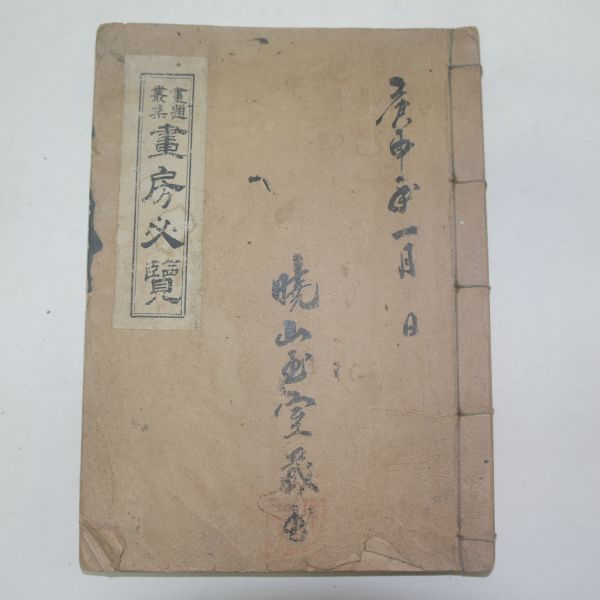 庚申年一月 日
曉山玉室藏書
畫題叢集
畫房必覽